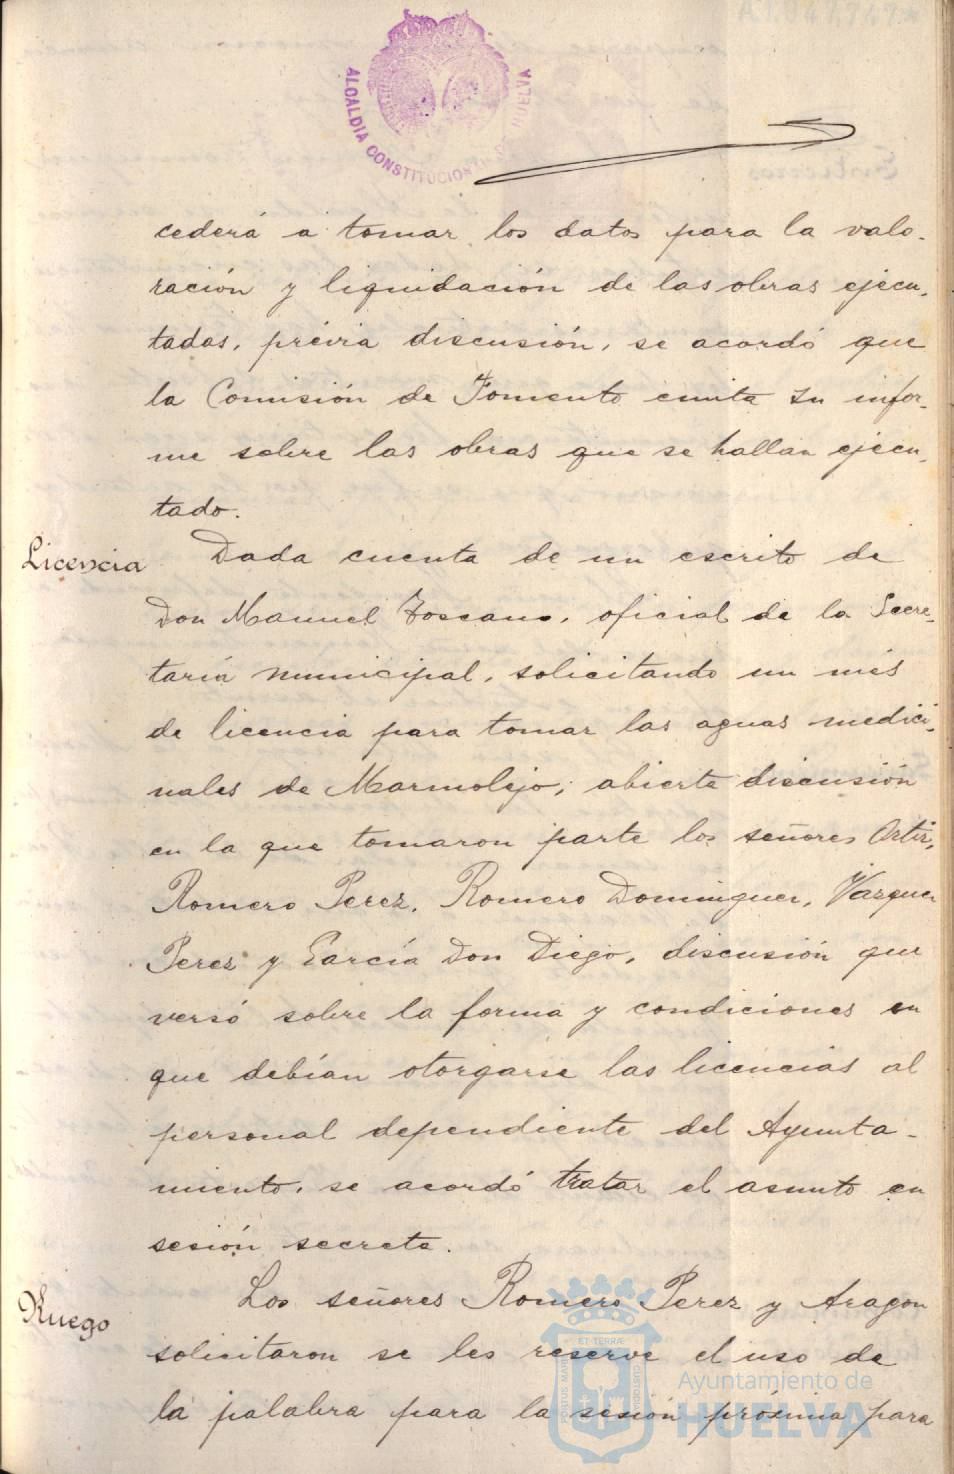 ALCALDIA CONSTITUCIONAL HUELVA
cederá a tomar los datos para la valo-
ración y liquidación de las obras ejecu-
tadas, previa discusión, se acordó que
la Comisión de Fomento emita su infor-
me sobre las obras que se hallan ejecu-
tado.
Licencia
Dada cuenta de un escrito de
Don Manuel Toscano, oficial de la Secre-
taría municipal, solicitando un més
de licencia para tomar las aguas medici-
nales de Marmolejo; abierta discusión
en la que tomaron parte los señores Ortiz,
Romero Perez, Romero Dominguez, Vazquez
Perez y García Don Diego, discusión que
versó sobre la forma y condiciones en
que debían otorgarse las licencias al
personal dependiente del Ayunta-
miento, se acordó tratar el asunto en
sesión secreta.
Ruego
Los señores Romero Perez y Aragon
solicitaron se les reserve el uso de
la palabra para la sesión próxima para
ET TERRÆ
PORTUS MARIS
CUSTODIA
Ayuntamiento de
HUELVA